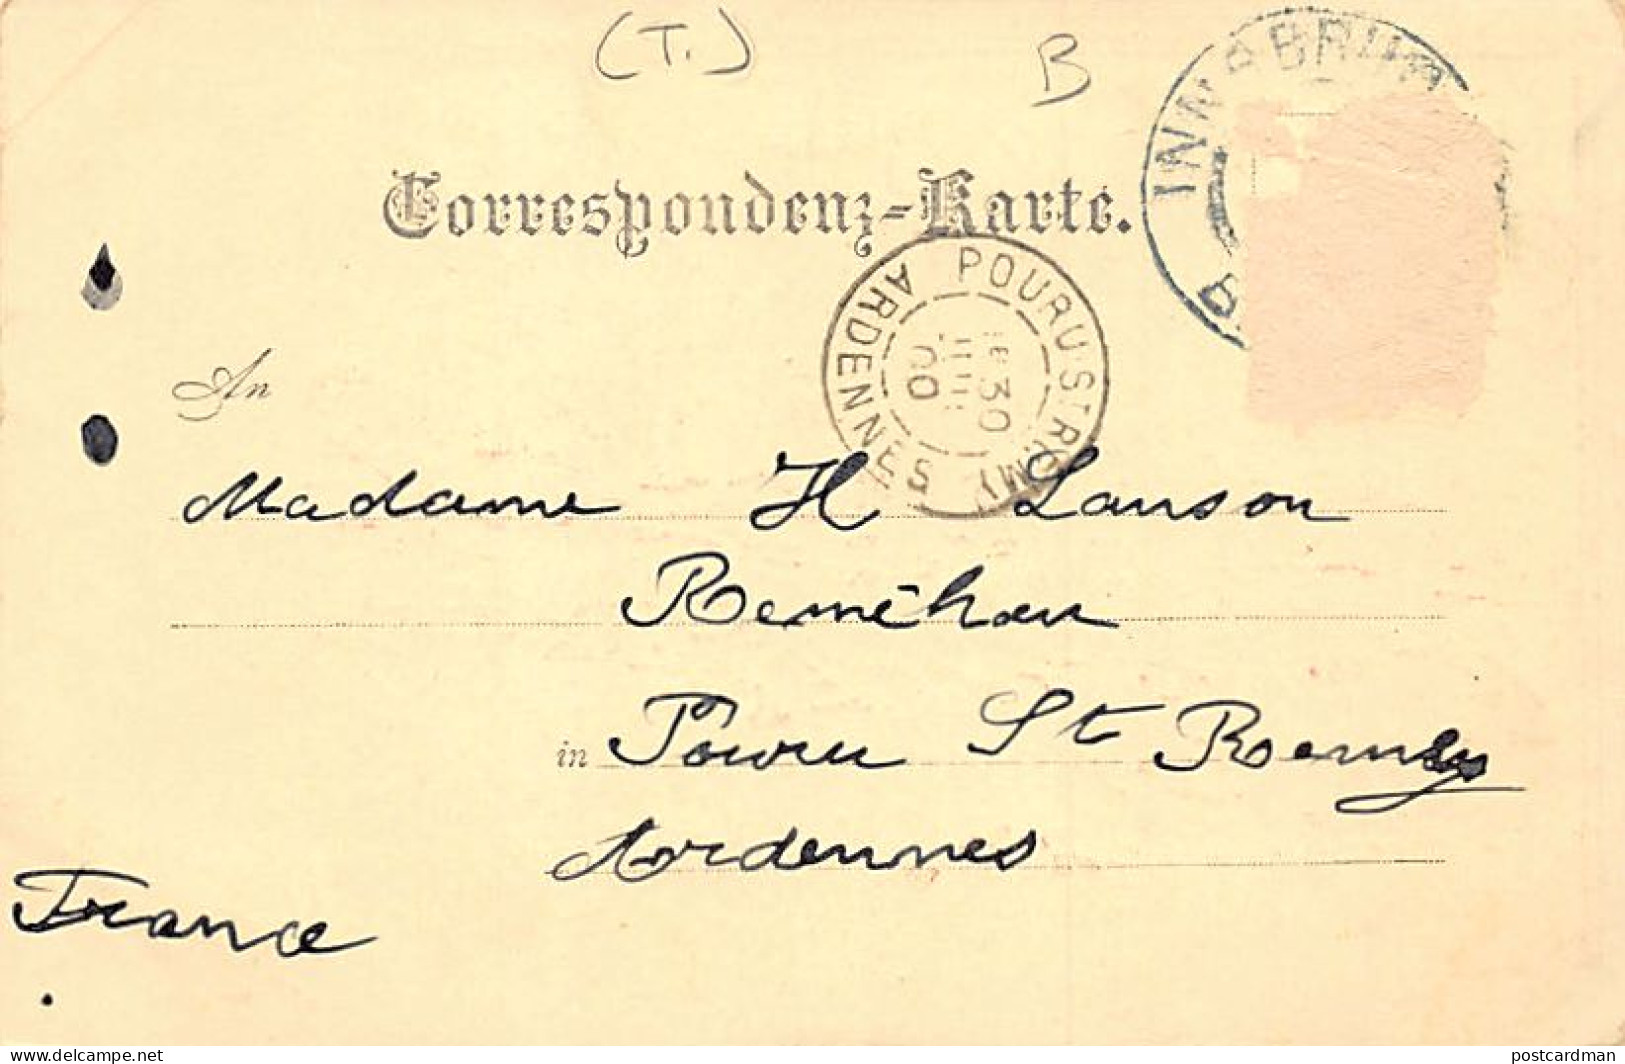 (T.) B
Correspondenz-Karte.
POURU-ST-REMY
ARDENNES
30
00
An
Madame H Lanson
Reméhan
in Pouru St Remy
Ardennes
France
www.delcampe.net
postcardman